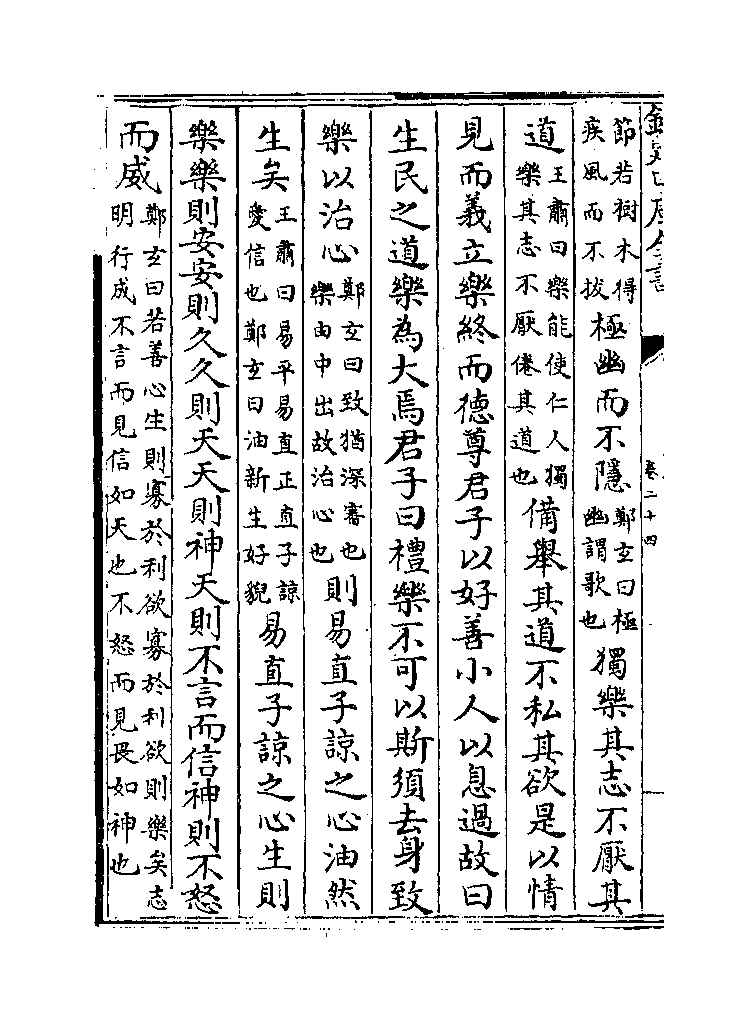 欽定四庫全書
卷二十四
節若樹木得疾風而不拔極幽而不隱鄭玄曰極幽謂歌也獨樂其志不厭其
道王肅曰樂能使仁人獨樂其志不厭倦其道也備舉其道不私其欲是以情
見而義立樂終而德尊君子以好善小人以息過故曰
生民之道樂為大焉君子曰禮樂不可以斯須去身致
樂以治心鄭玄曰致猶深審也樂由中出故治心也則易直子諒之心油然
生矣王肅曰易平易直正直子諒愛信也鄭玄曰油新生好貌易直子諒之心生則
樂樂則安安則久久則天天則神天則不言而信神則不怒
而威鄭玄曰若善心生則寡於利欲寡於利欲則樂矣志明行成不言而見信如天也不怒而見畏如神也